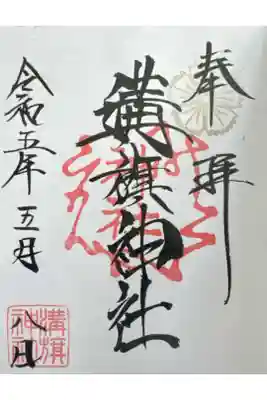 奉拝
溝旗神社
令和五年 五月 八日
溝旗
神社